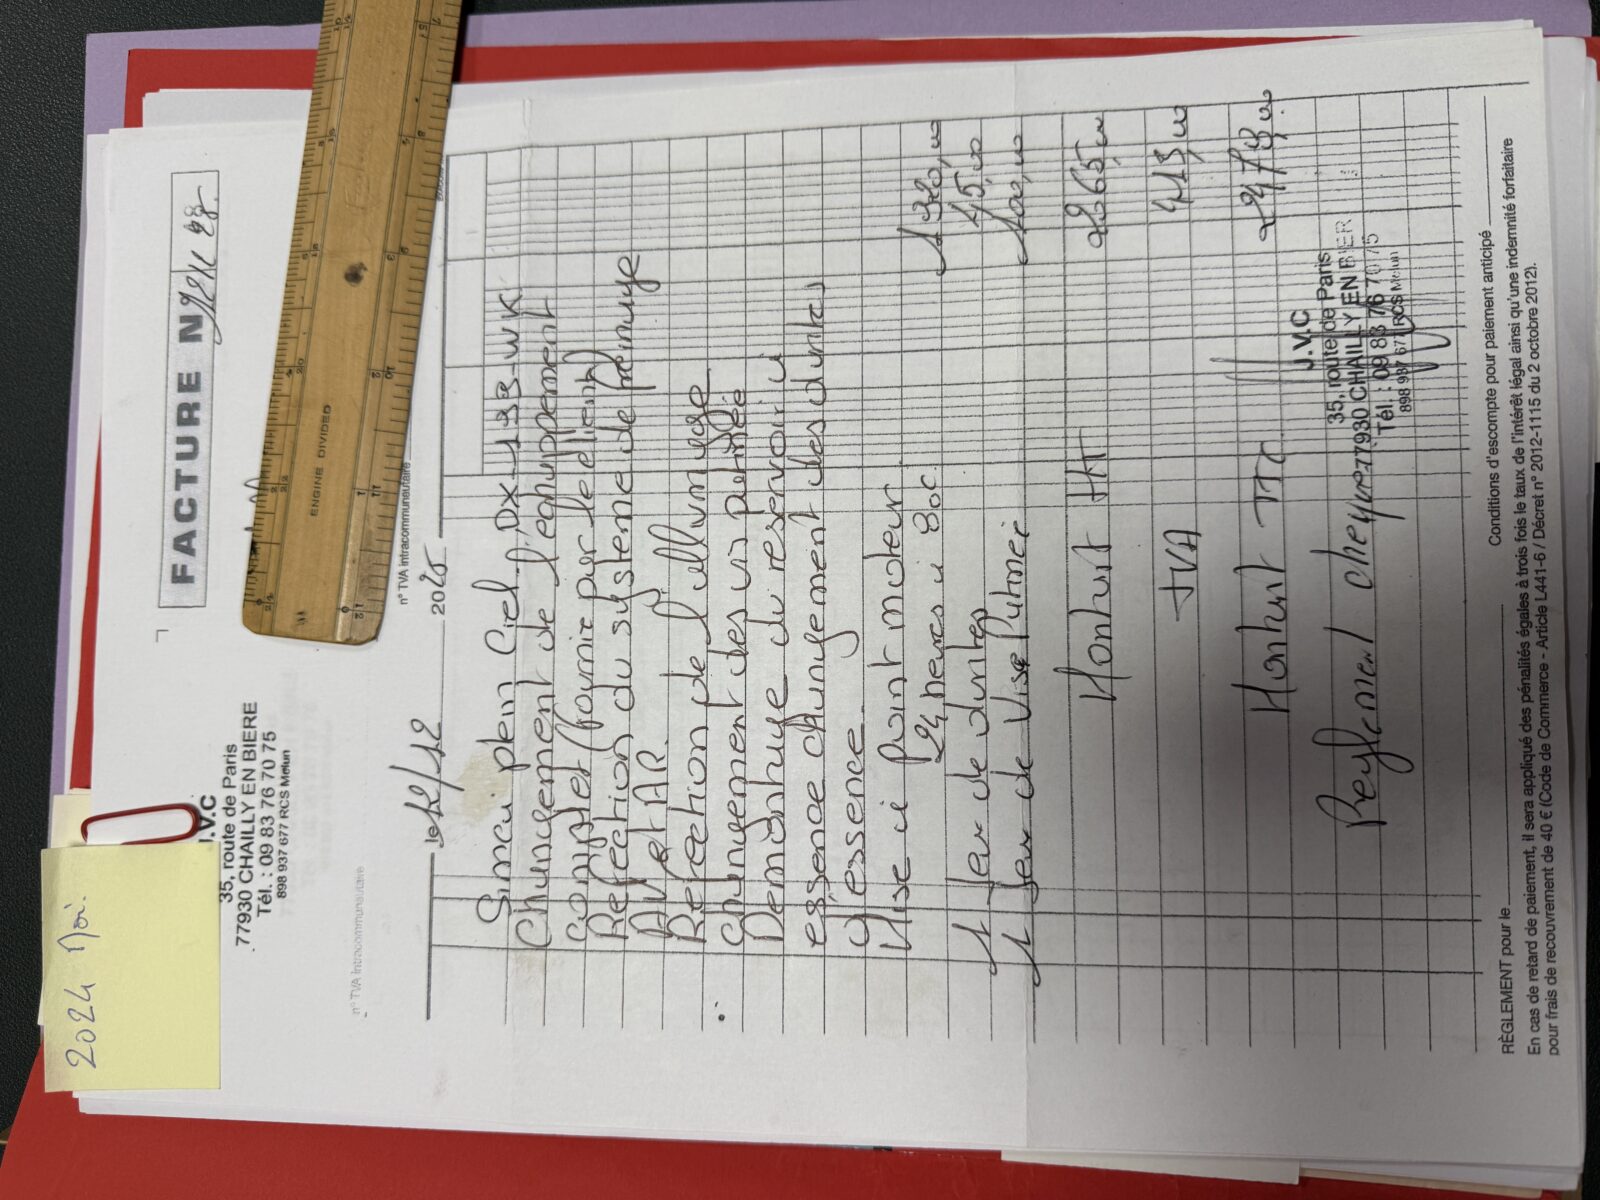 2024 Noi.
J.V.C
35, route de Paris
77930 CHAILLY EN BIERE
Tél. : 09 83 76 70 75
898 937 677 RCS Melun
FACTURE N°
n° TVA intracommunautaire
n° TVA intracommunautaire
ENGINE DIVIDED
le 12/12 2025
Simca plein Ciel DX-133-WK
Changement de l'echappement
complet (fournie par le client)
Refection du systeme de freinage
AV et AR
Refection de l'allumage
changement des vis platinée
Demontage du reservoir a
essence changement des durites
d'essence
Mise a point moteur
24 heures a 80€ 1920,00
1 Jeux de durites 45,00
1 Jeux de Vise Platinée 100,00
Montant HT 2065,00
TVA 413,00
Montant TTC 2478,00
Reglement cheque
J.V.C
35, route de Paris
77930 CHAILLY EN BIER
Tél. : 09 83 76 70 75
898 937 677 RCS Melun
RÈGLEMENT pour le Conditions d'escompte pour paiement anticipé
En cas de retard de paiement, il sera appliqué des pénalités égales à trois fois le taux de l'intérêt légal ainsi qu'une indemnité forfaitaire
pour frais de recouvrement de 40 € (Code de Commerce - Article L441-6 / Décret n° 2012-1115 du 2 octobre 2012).